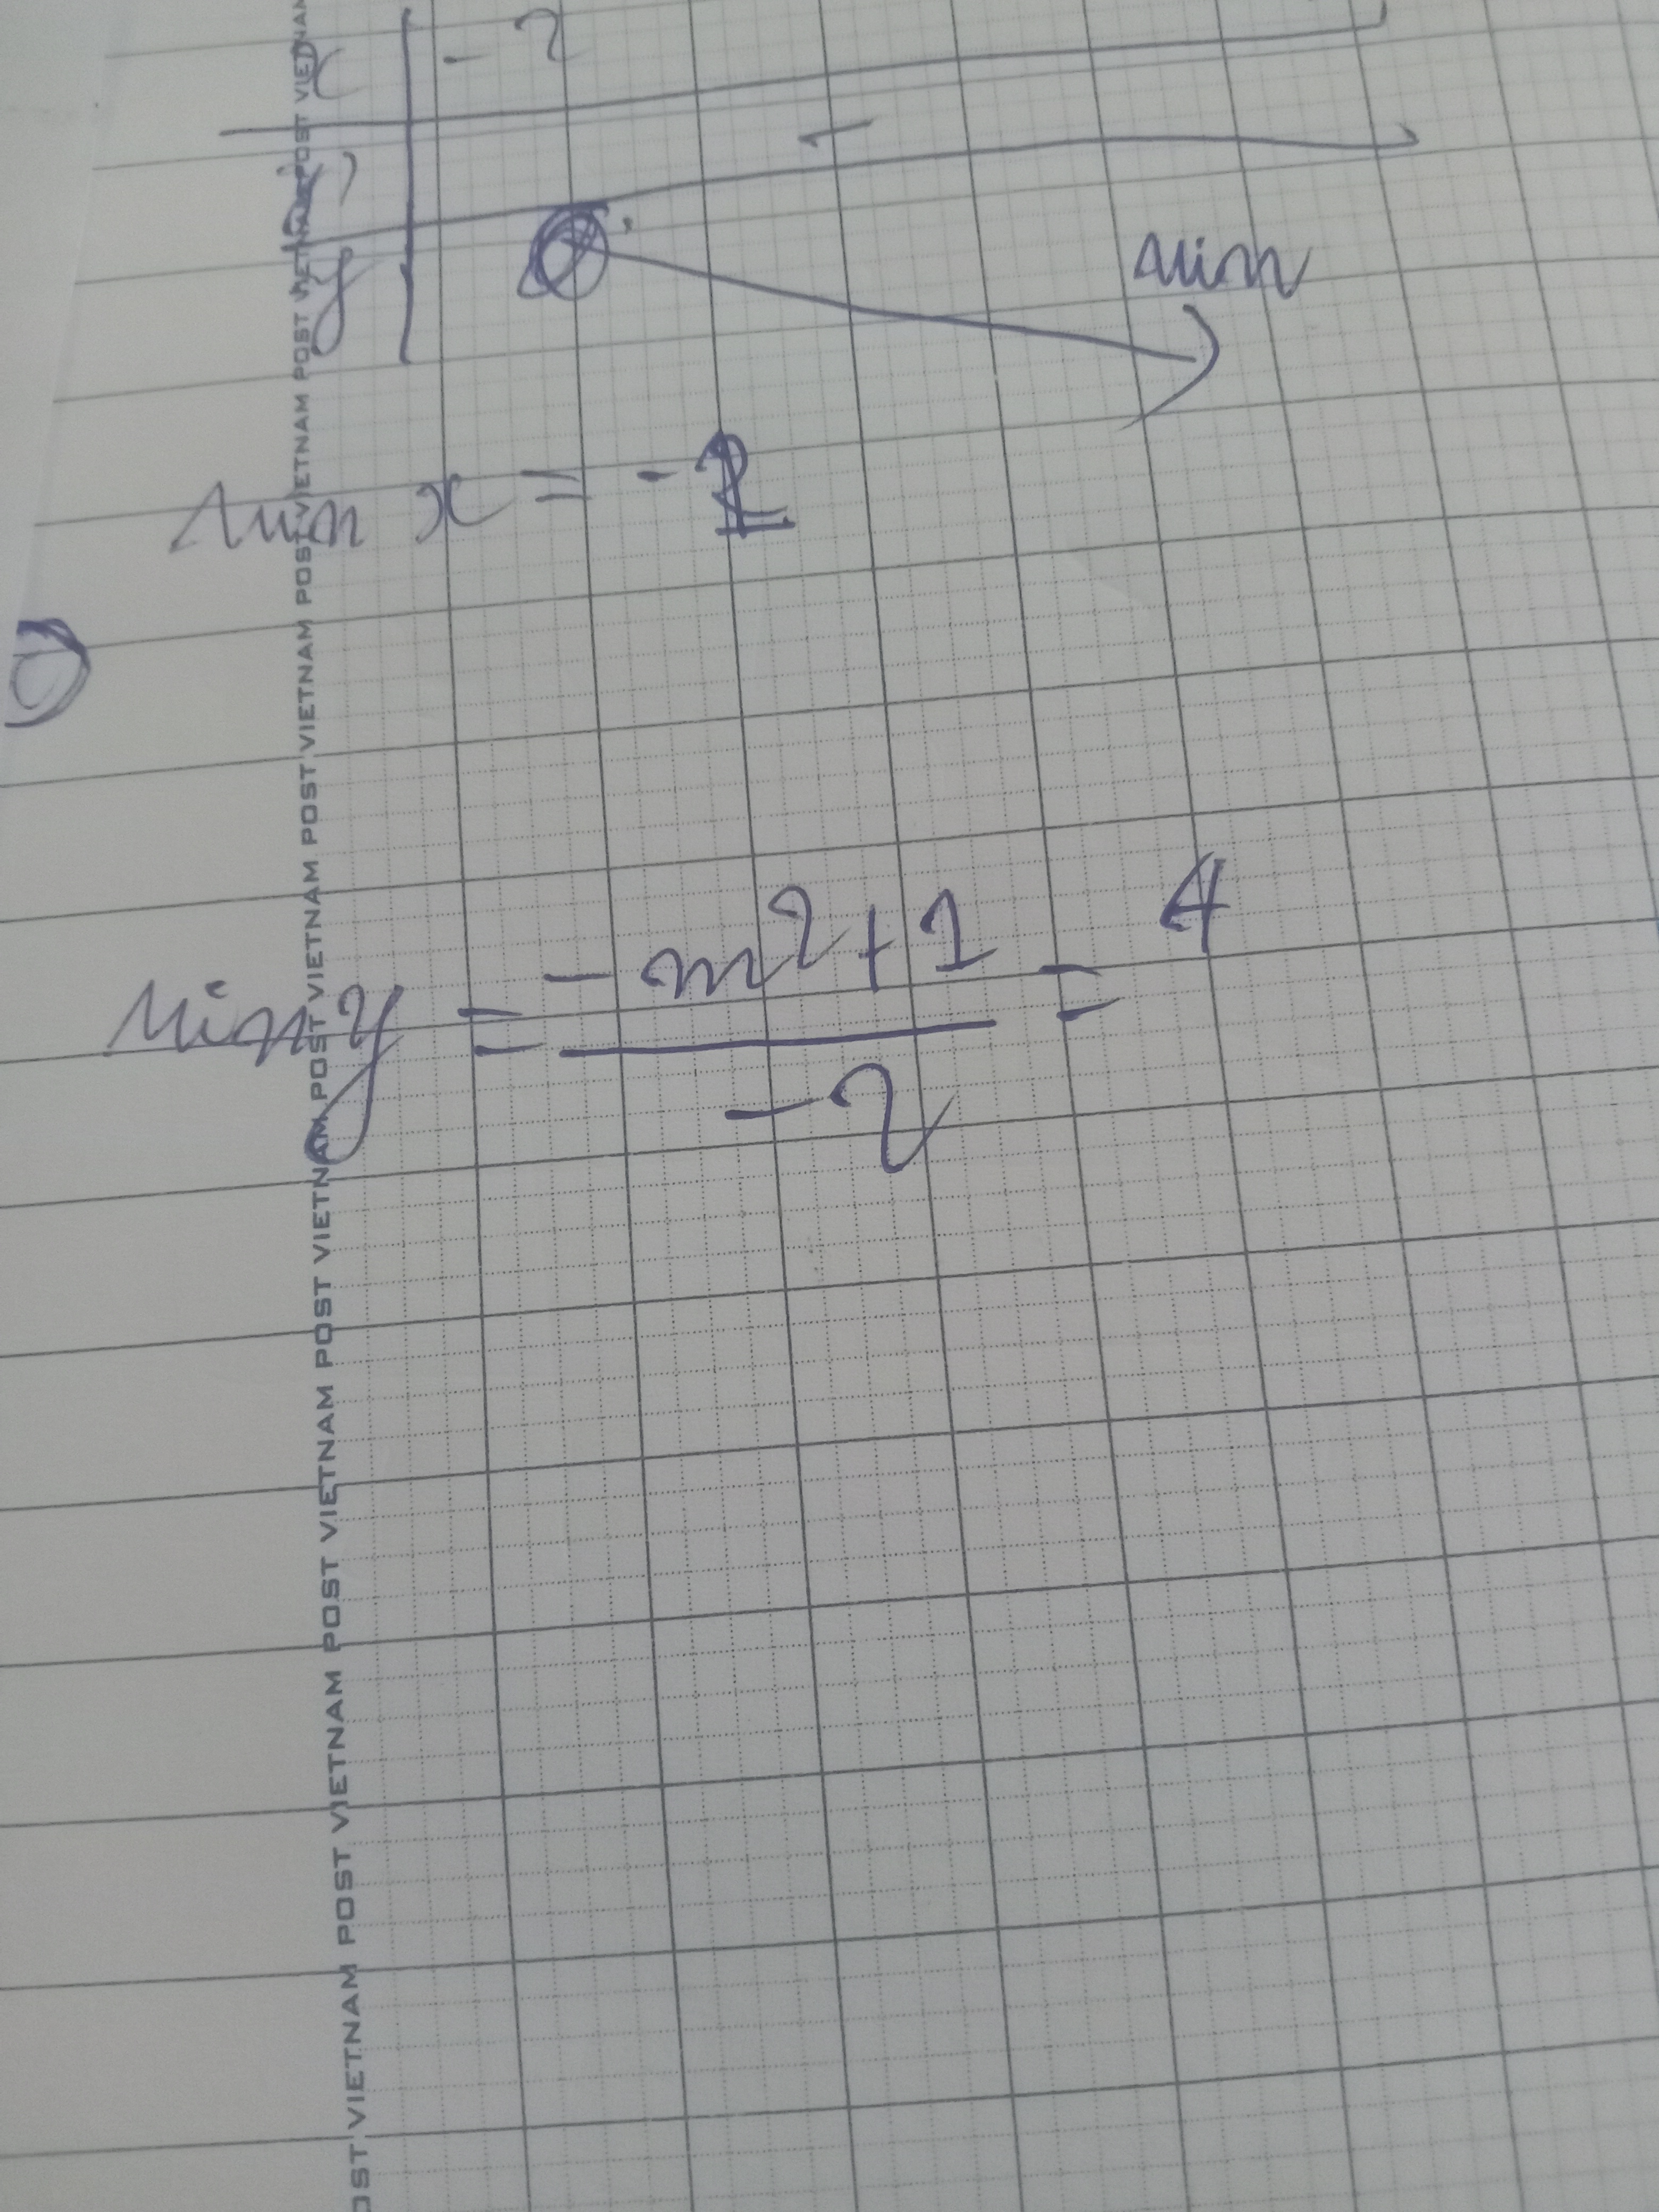 x | -2
y' | -
y | min
min x = -1
Min y = \frac{-m^2+1}{-2} = 4
POST VIETNAM POST VIETNAM POST VIETNAM POST VIETNAM POST VIETNAM POST VIETNAM POST VIETNAM POST VIETNAM